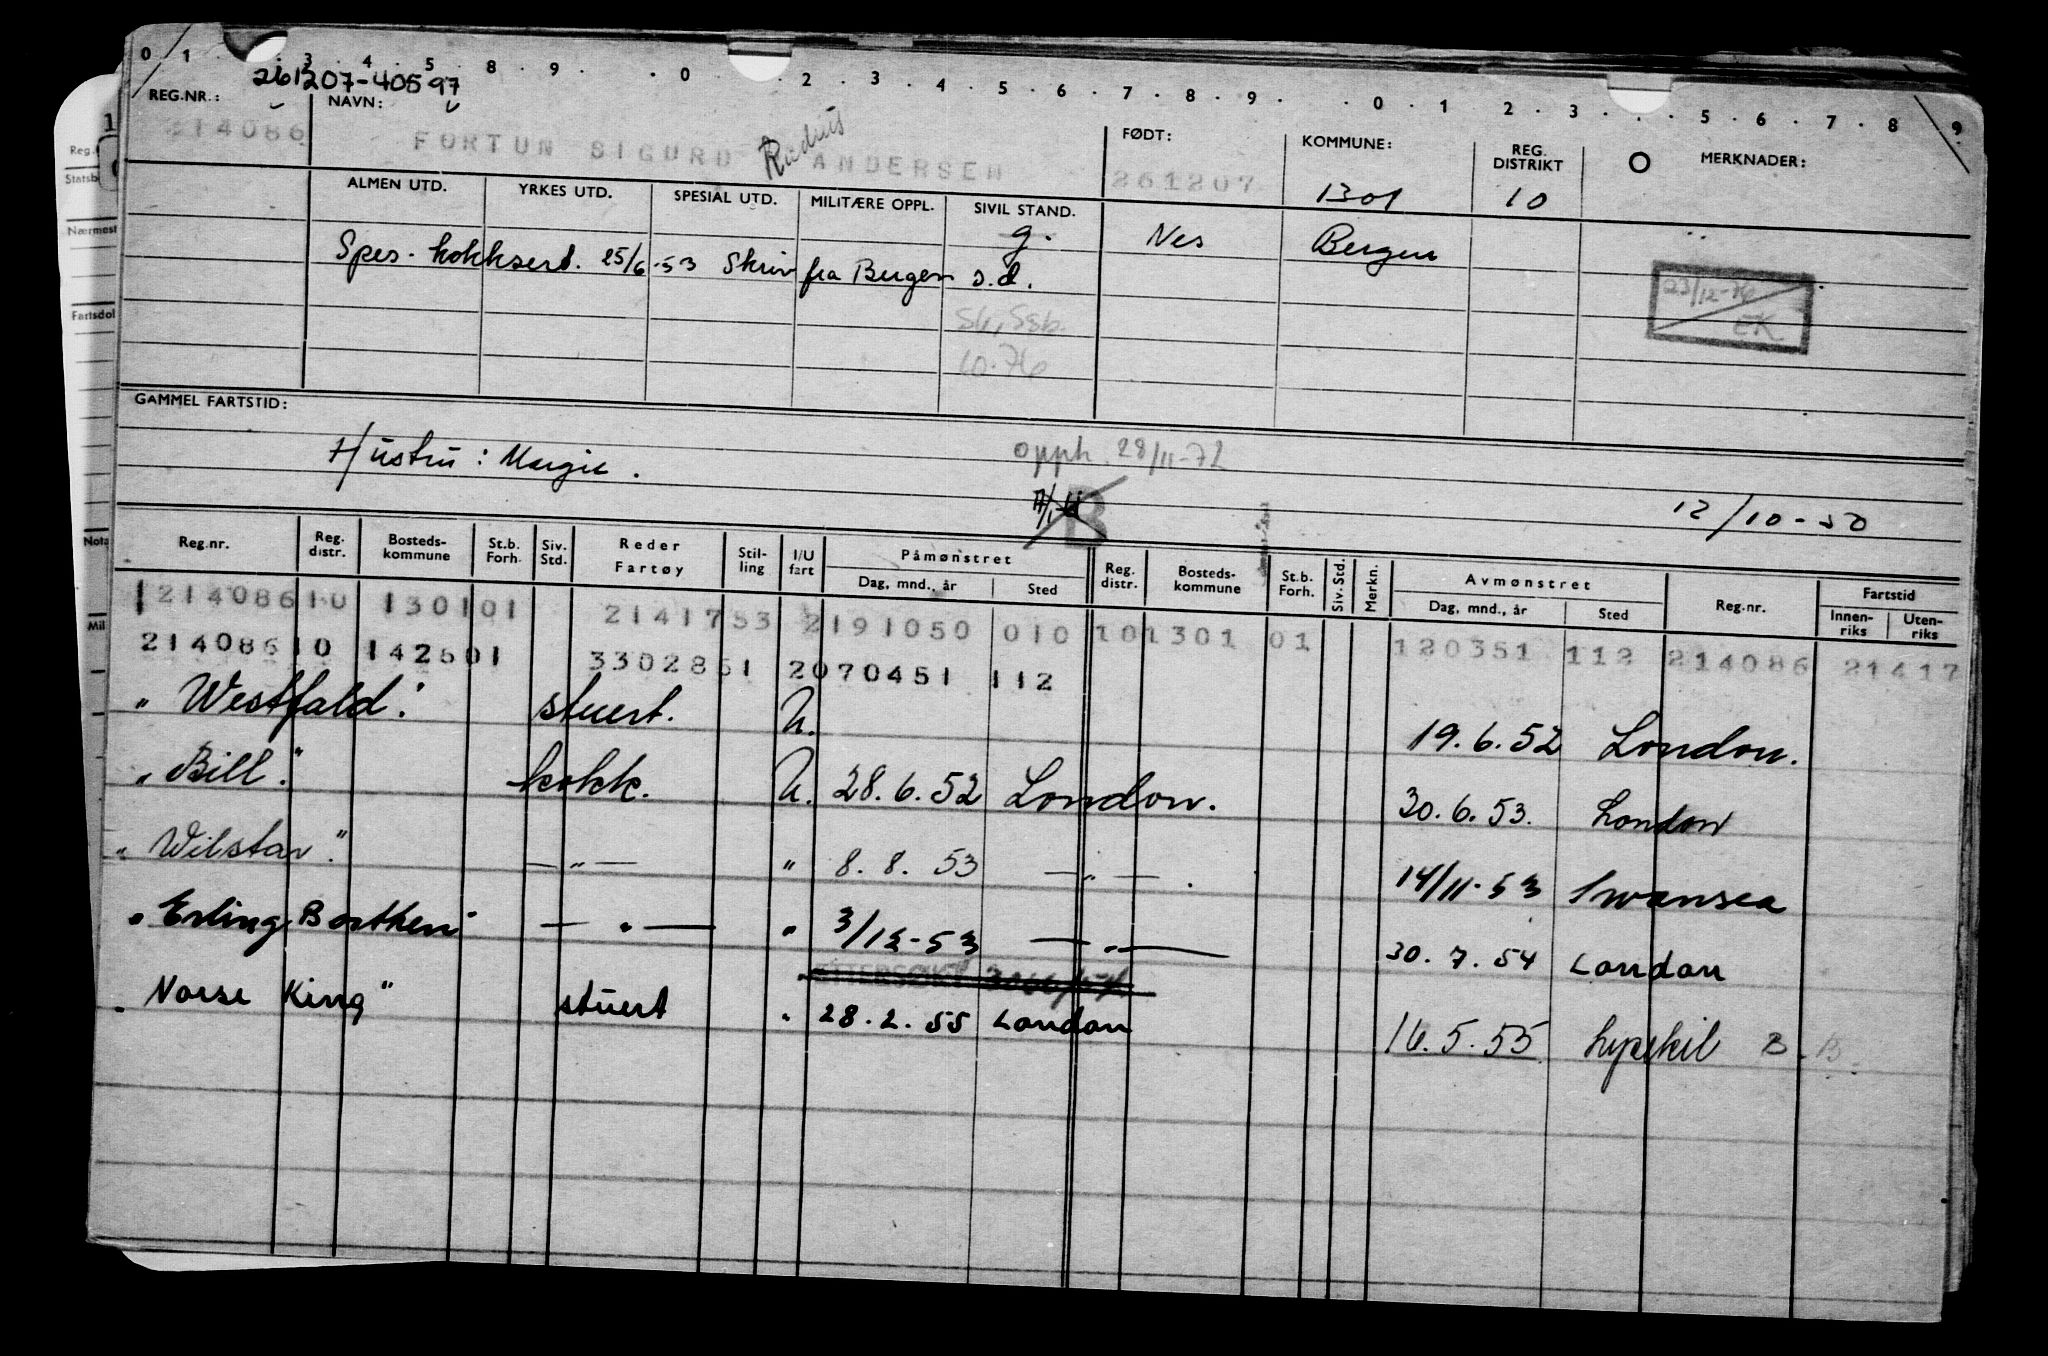 0 1 3 4 5 8 9 0 2 3 4 5 6 7 8 9 0 1 2 3 5 6 7 8 9
261207-40597
REG.NR.: NAVN: FØDT: KOMMUNE: REG. DISTRIKT MERKNADER:
214086 FORTUN SIGURD ANDERSEN 261207 1301 10
ALMEN UTD. YRKES UTD. SPESIAL UTD. MILITÆRE OPPL. SIVIL STAND.
g. Nes Bergen
Spes. kokksert. 25/6-53 Skriv fra Bergen s.d.
23/12-76
EK
10.76
GAMMEL FARTSTID:
Hustru: Margit.
opph. 28/11-72
B
12/10-50
Reg.nr. Reg. distr. Bosteds-kommune St.b. Forh. Siv. Std. Reder Fartøy Stil-ling I/U fart Påmønstret Reg. distr. Bosteds-kommune St.b. Forh. Siv. Std. Merkn. Avmønstret Reg.nr. Fartstid
Dag, mnd., år Sted Dag, mnd., år Sted Innen-riks Uten-riks
1 214086 10 1301 01 2141753 2 191050 010 10 1301 01 120351 112 214086 21417
214086 10 1426 01 3302851 2 070451 112
"Westfald". stuert. U. 19.6.52 London.
"Bill". kokk. U. 28.6.52 London. 30.6.53. London
"Wilstar". — " — " 8.8.53 — " — . 14/11-53 Swansea
"Erling Borthen" — " — " 3/12-53 — " — 30.7.54 London
"Norse King" stuert " 28.2.55 London 16.5.55 Lysekil B.B.